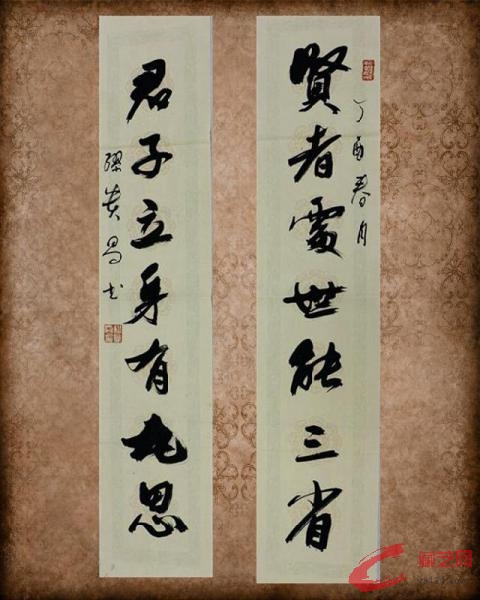 賢者處世能三省
丁酉春月
君子立身有九思
昌书